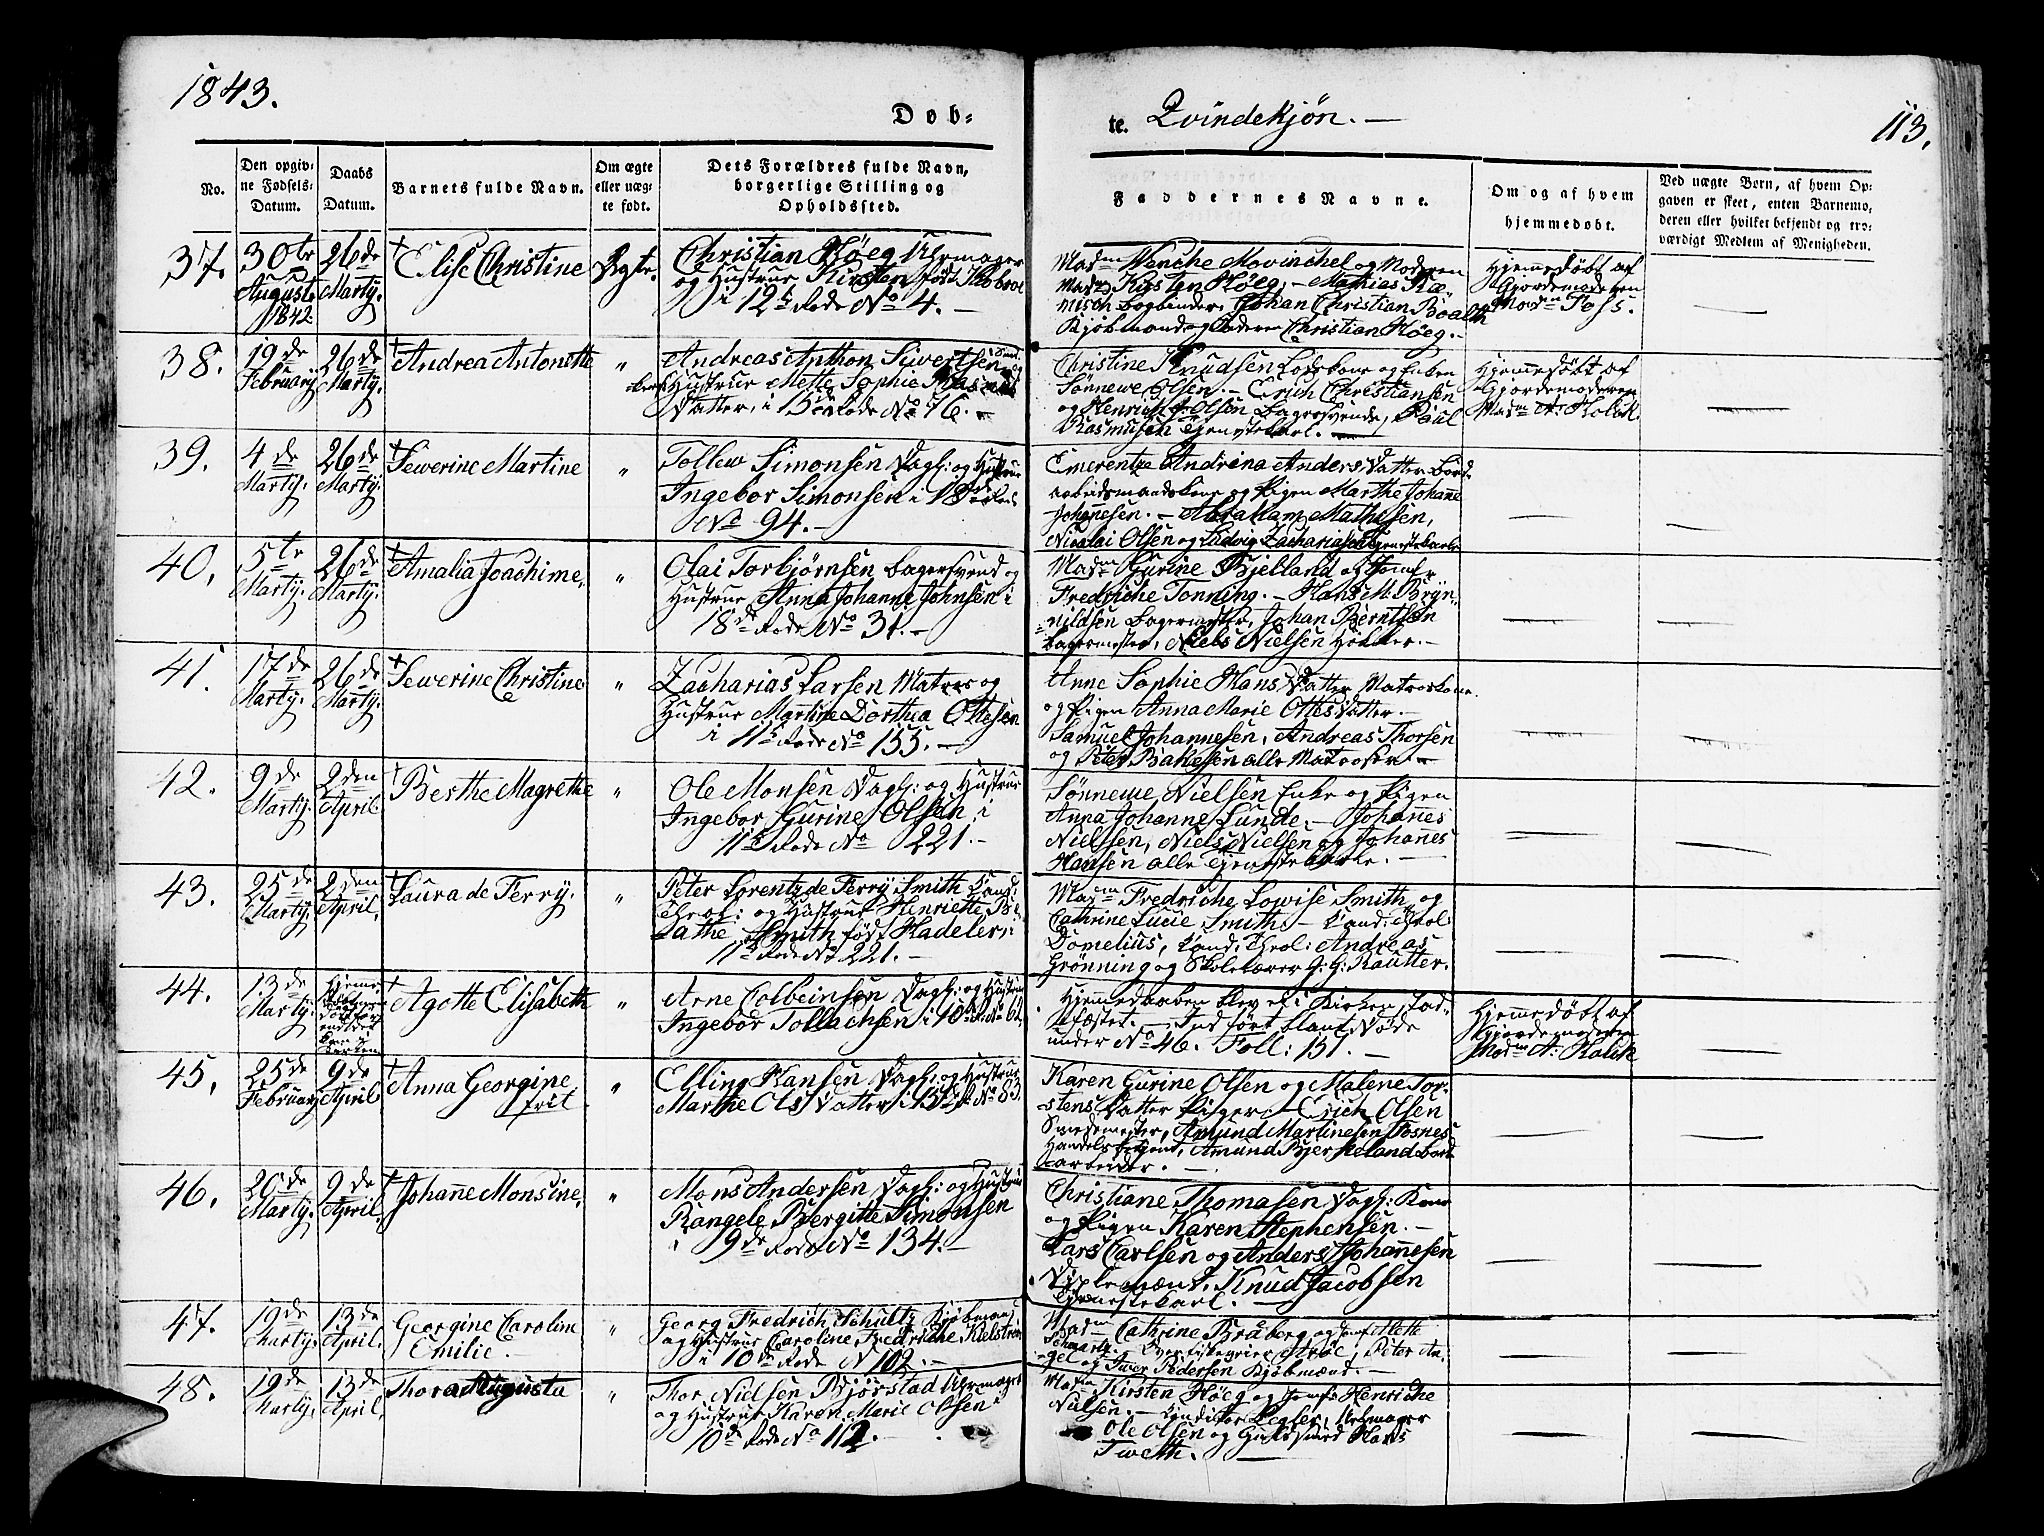 1843.
Døb-
te. Qvindekjøn. —
113.
No.
Den opgiv-
ne Fødsels-
Datum.
Daabs
Datum.
Barnets fulde Navn.
Om ægte
eller uæg-
te født.
Dets Forældres fulde Navn,
borgerlige Stilling og
Opholdssted.
Faddernes Navne.
Om og af hvem
hjemmedøbt.
Ved uægte Børn, af hvem Op-
gaven er skeet, enten Barnemo-
deren eller hvilket bekjendt og tro-
værdigt Medlem af Menigheden.
37.
30te
August
1842.
26de
Marty.
Elise Christine
Ægte.
Christian Høeg Uhrmager
og Hustrue Kirsten født
i 12te Rode No 4. —
Madm Wenche Movinchel og Moderen
Madm Kirsten Høeg. — Mathias
Bogbinder, Johan Christian Boalth
Kjøbmand og Faderen Christian Høeg. —
Hjemmedøbt af
Gjordemoderen
Madm Foss.
38.
19de
February
26de
Marty.
Andrea Antonette
"
Andreas Anthon Sivertsen
Hustrue Mette Sophie
Datter, i 15de Rode No 76. —
Christine Knudsen og Enken
Sønnewe Olsen. — Erich Christiansen
og Henrich J. Olsen Bagersvende, Poul
Rasmusen Tjenestekarl. —
Hjemmedøbt af
Gjordemoderen
Madm A. Kolik.
39.
4de
Marty.
26de
Marty.
Sewerine Martine
"
Tollew Simonsen Dagl: og Hustrue
Ingebor Simonsen i 18de Rode
No 94. —
Emerentze Andrina Anders Datter Bord-
arbeidsmandskone og Pigen Marthe Johanne
Johannesen. — Abraham Mathesen,
Nicolai Olsen og Ludvig Zachariasen Tjenestekarle
40.
5te
Marty.
26de
Marty.
Amalia Joachime.
"
Olai Torbjørnsen Bagersvend og
Hustrue Anna Johanne Johnsen i
18de Rode No 31. —
Madm Gurine Bjelland og Jomf
Fredriche Tonning. — Hans M. Bryn-
nildsen Bagermester, Johan Berntsen
Bagermester, Niels Nielsen Høkker. —
41.
17de
Marty.
26de
Marty.
Sewerine Christine
"
Zacharias Larsen Matros og
Hustrue Martine Dorthea Ottesen
i 11te Rode No 155. —
Anne Sophie Hans Datter Matroskone.
og Pigen Anna Marie Ottes Datter. —
Samuel Johannesen, Andreas Thorsen
og Peter Bakesen alle Matroser. —
42.
9de
Marty.
2den
April
Berthe Magrethe
"
Ole Monsen Dagl: og Hustrue
Ingebor Gurine Olsen i
11te Rode No 221. —
Sønnewe Nielsen Enke og Pigen
Anna Johanne Lunde. — Johannes
Nielssen, Niels Nielsen og Johannes
Hansen alle Tjenestekarle. —
43.
25de
Marty.
2den
April.
Laura de Ferry.
"
Peter Lorentz de Ferry Smith Cand:
Theol: og Hustrue Henriette
Smith født Kadeler i
11te Rode No 221. —
Madm Fredriche Lowise Smith og
Cathrine Lucie Smith. — Cand: Theol:
Domelius, Cand: Theol: Andreas
Grønning og Skolelærer G: G: Rautter.
44.
13de
Marty.
Agotte Elisabeth
"
Arne Colbeinsen Dagl: og Hustrue
Ingebor Tollachsen i 10de R: No 62
Hjemmedaaben blev ei i Kirken Stad-
fæstet. — Indført blant Døde
under No 46. Foll: 151. —
Hjemmedøbt af
Gjordemoderen
Madm A: Kolik
45.
25de
February
9de
April
Anna Georgine
"
Elling Hansen Dagl: og Hustrue
Marthe Ols Datter i 13de R: No 83.
Karen Gurine Olsen og Malene Tor-
stens Datter Piger. — Erich Olsen
Smedemester, Amund Martinesen Fosnes
Handels, Amund Bjerkeland Bord-
arbeider. —
46.
26de
Marty.
9de
April.
Johanne Monsine.
"
Mons Andersen Dagl: og Hustrue
Rangele Bergitte Simonsen
i 9de Rode No 134. —
Christiane Thomasen Dagl: Kone
og Pigen Karen Stephensen. —
Lars Carlsen og Anders Johannesen
Knud Jacobsen
Tjenestekarl. —
47.
19de
Marty.
13de
April.
Georgine Caroline
Emilie. —
"
Georg Fredrich Schultz Kjøbmand
og Hustrue Caroline Fredriche Kielstrup
i 10de Rode No 102. —
Madm Cathrine Braberg og Jomf Mette
Peter An-
gel og Iwer Pedersen Kjøbmænd. —
48.
19de
Marty.
13de
April.
Thora Augusta
"
Thor Nielsen Bjørstad Uhrmager
og Hustrue Karen Marie Olsen i
10de Rode No 112. —
Madm Kirsten Høeg og Jomf Henriche
Nielsen. — Conditor Legler, Uhrmager
Ole Olsen og Guldsmed Hans
Tweth. —